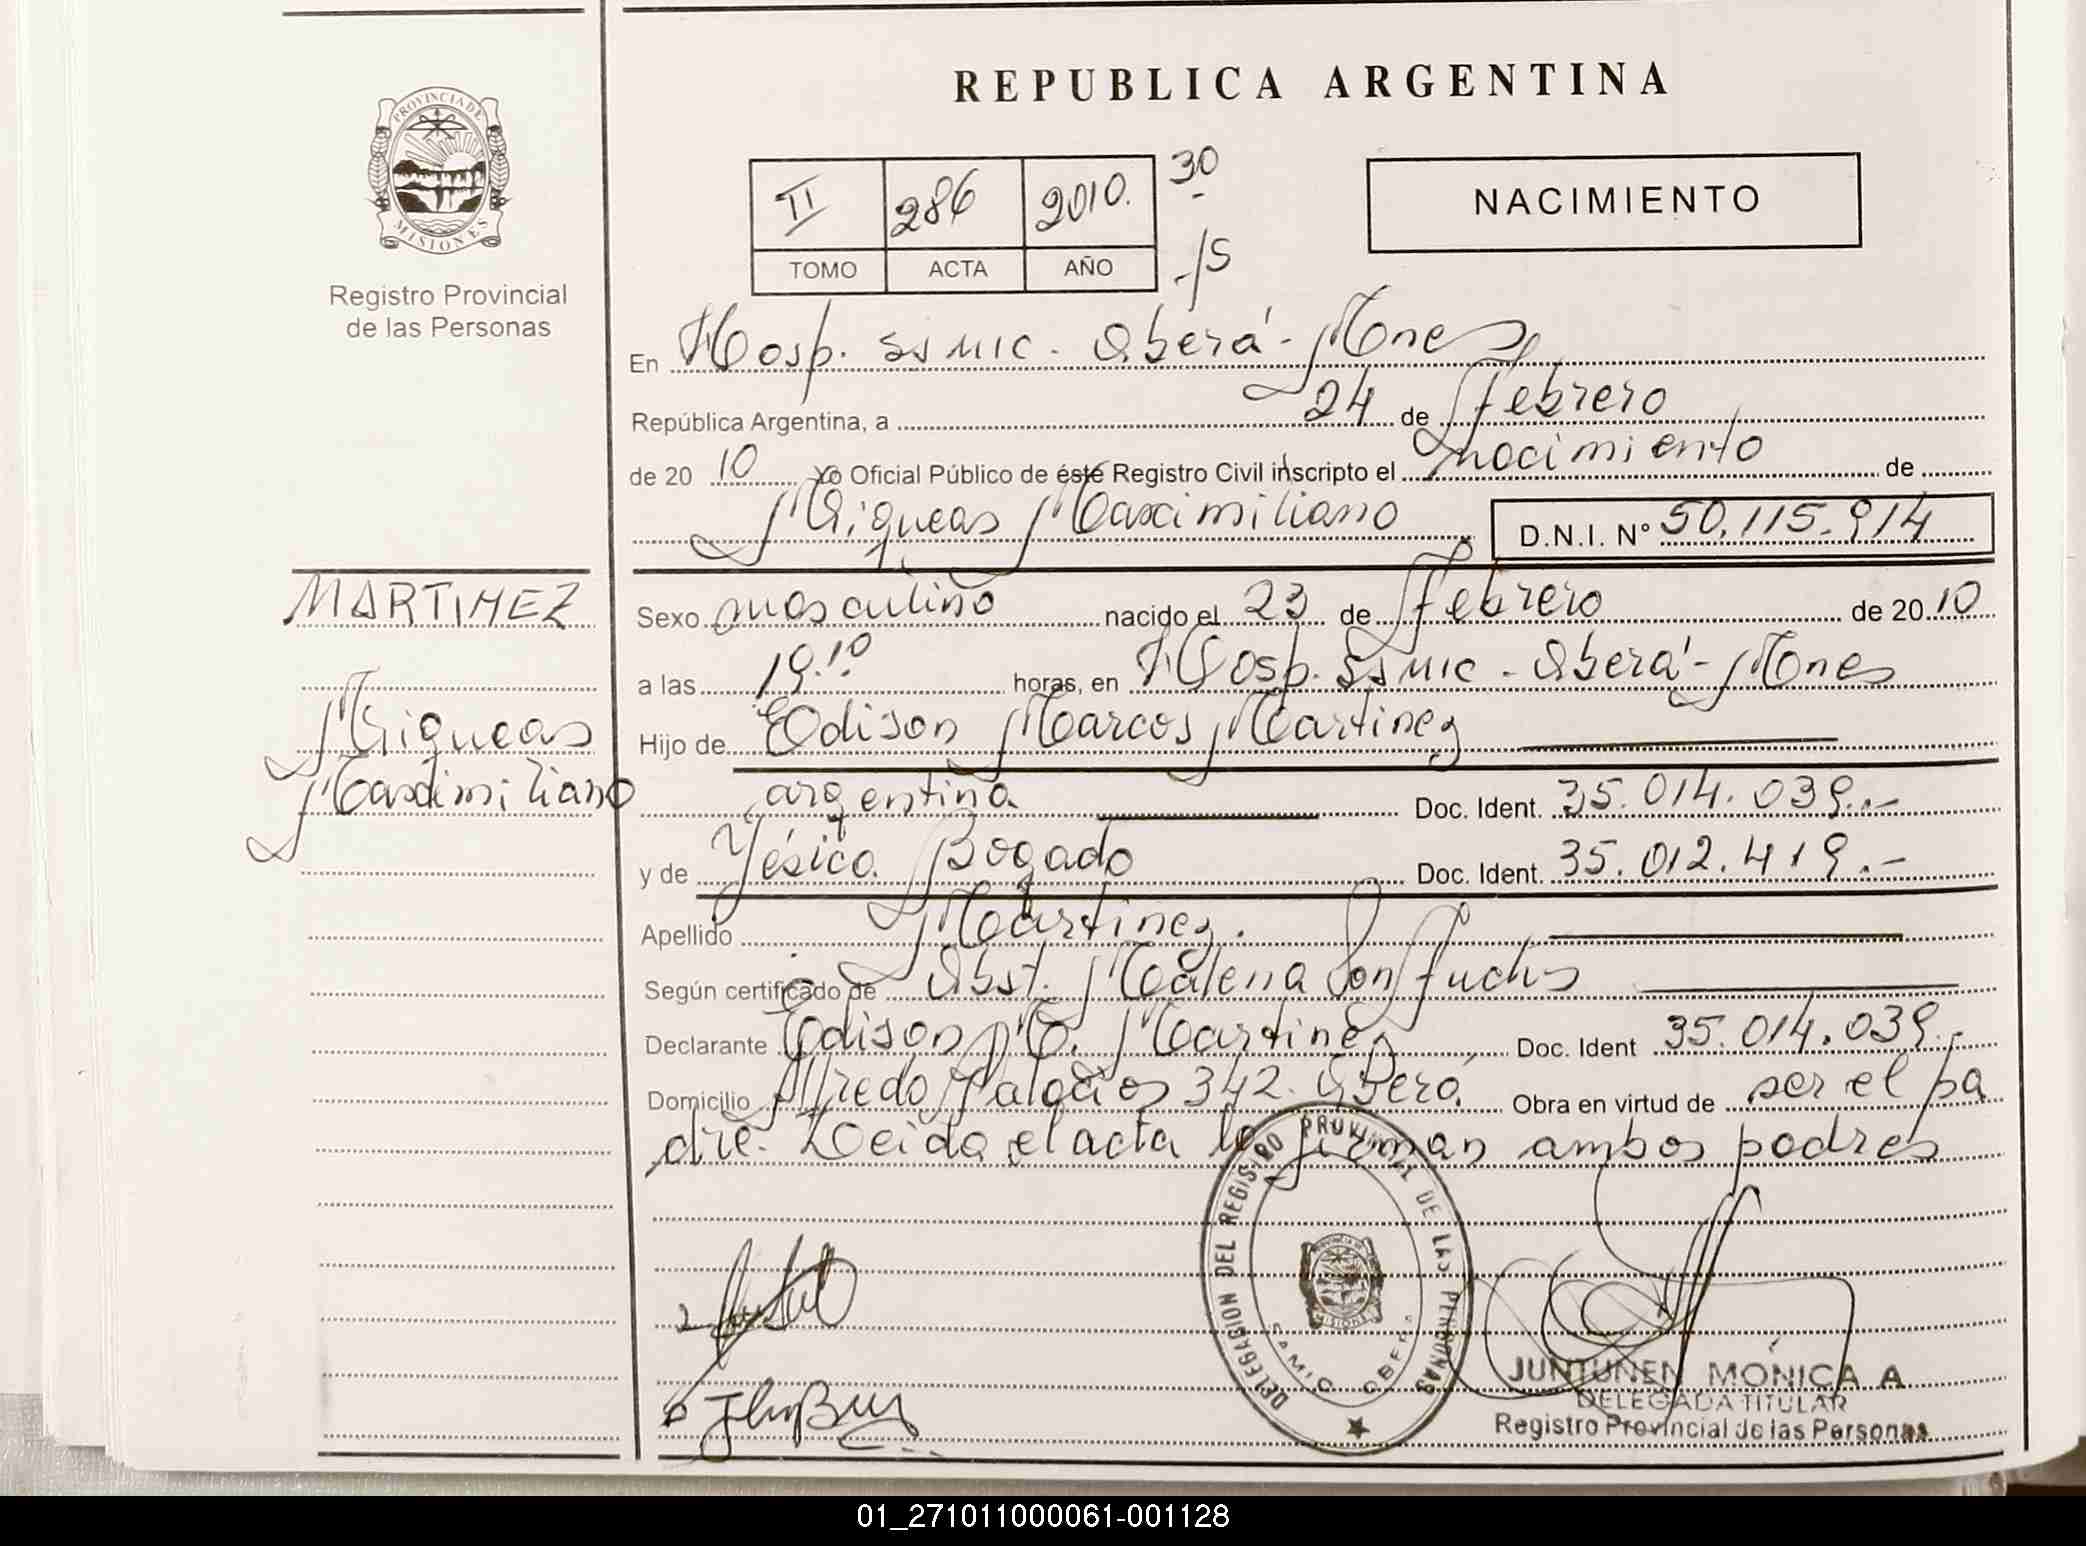 REPUBLICA ARGENTINA
PROVINCIA DE
MISIONES
Registro Provincial
de las Personas
II 286 2010. 30
TOMO ACTA AÑO -15
NACIMIENTO
En Hosp. SSMIC. Oberá - Mnes
República Argentina, a 24 de Febrero
de 20 10 Yo Oficial Público de éste Registro Civil inscripto el nacimiento de
Miqueas Maximiliano D.N.I. Nº 50.115.914
MARTINEZ
Miqueas
Maximiliano
Sexo masculino nacido el 23 de Febrero de 2010
a las 19.10 horas, en Hosp. SSMIC - Oberá - Mnes
Hijo de Edison Marcos Martinez
argentina Doc. Ident. 35.014.039.-
y de Yésica Bogado Doc. Ident. 35.012.419.-
Apellido Martinez.
Según certificado de Obst. Malena Von Fuchs
Declarante Edison M. Martinez Doc. Ident 35.014.039.-
Domicilio Alfredo Palacios 342. Oberá. Obra en virtud de ser el pa
dre. Leida el acta la firman ambos padres
DELEGACION DEL REGISTRO PROVINCIAL DE LAS PERSONAS
PROVINCIA DE
MISIONES
SAMIC OBERA
JUNTUNEN MONICA A
DELEGADA TITULAR
Registro Provincial de las Personas
01_271011000061-001128